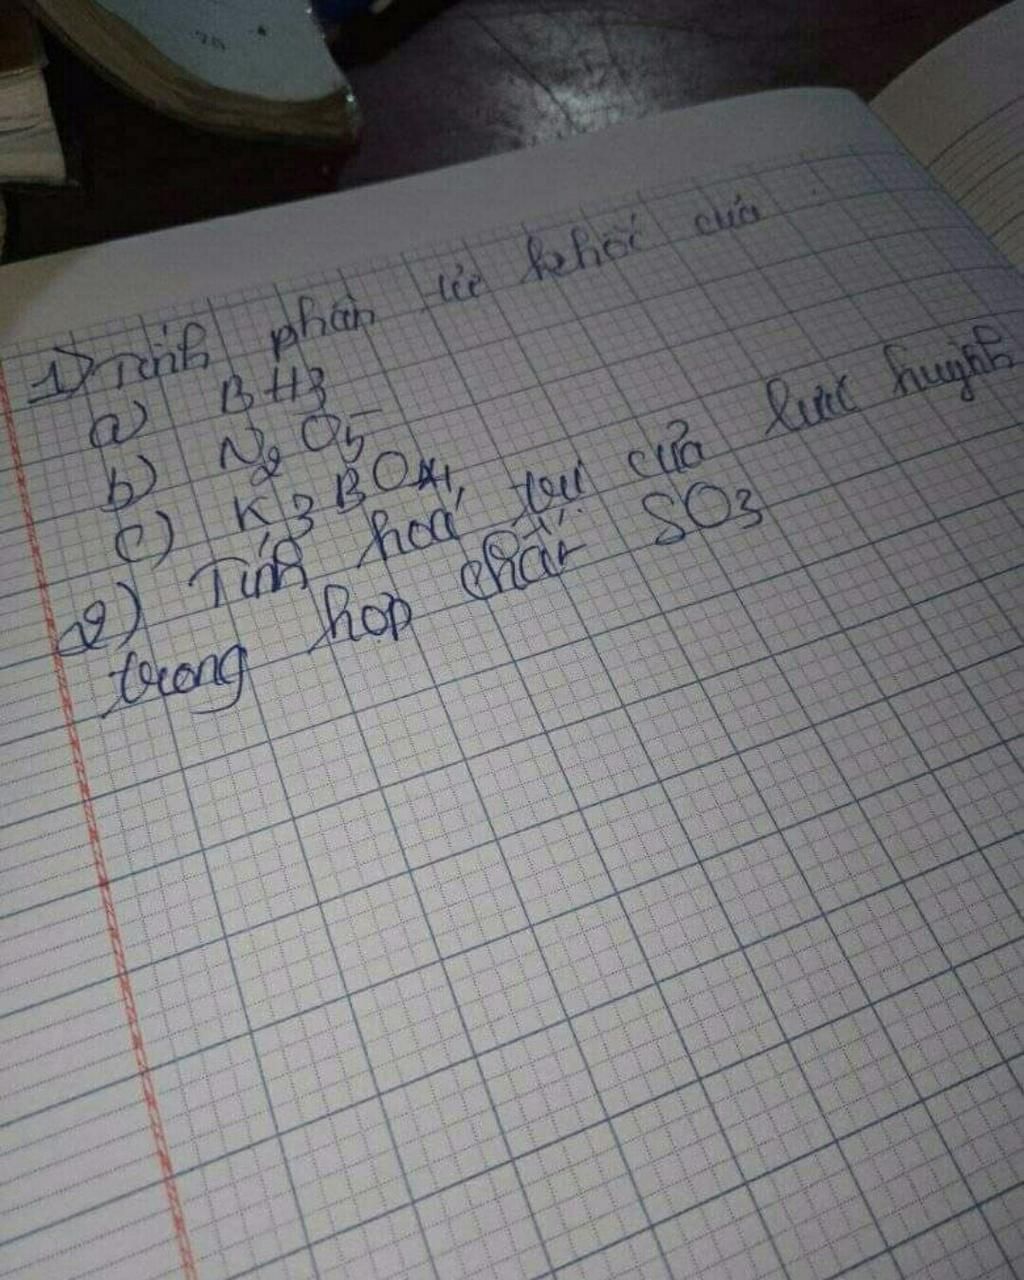 1) Tính phân tử khối của
a) BH3
b) N2O5
c) K3BO4
2) Tính hoá trị của lưu huỳnh
trong hợp chất SO3